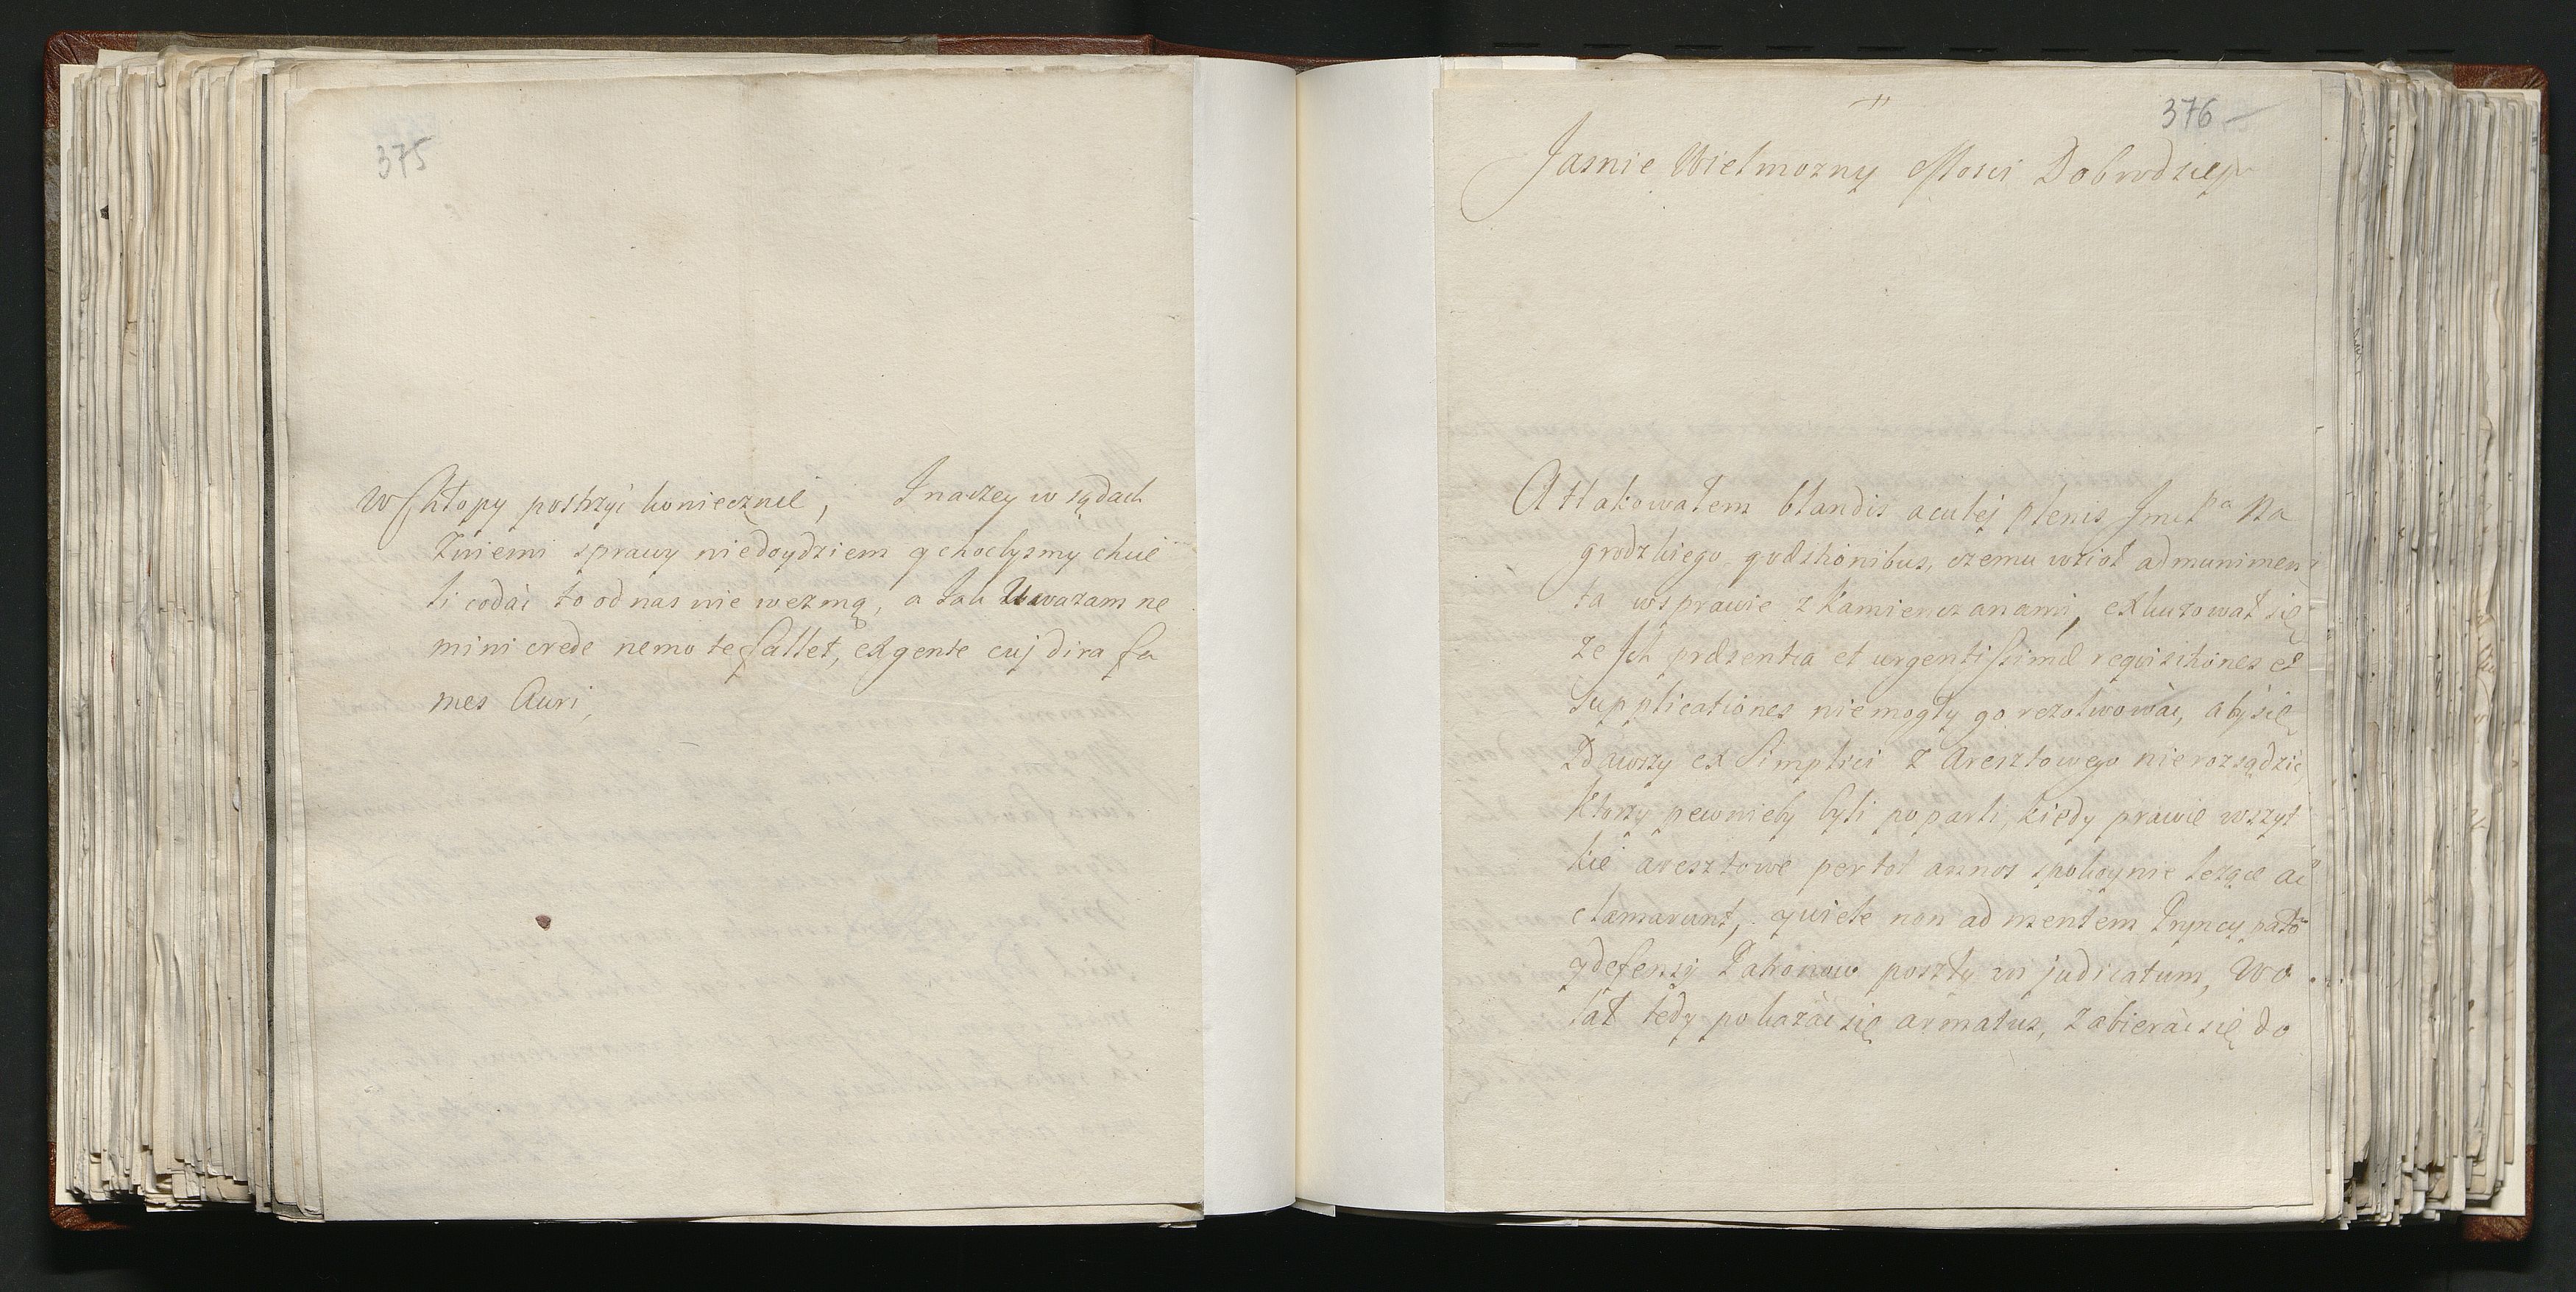 375
W Chłopy postrzydz koniecznie, Inaczey w sądach
Zniemi sprawy niedoydziem y chocbysmy chcie
li codać to od nas nie wezmą, a tak Uwazam ne
mini crede nemo te fallet, ex gente cuj dira fa
mes Auri,
376
Jasnie Wielmozny Mosci Dobrodzieju
Attakowałem blandis aculej plenis Jmci Pa Na
grodzkiego, czemu wzioł ad munimen
ta w sprawie z Kamienczanami, exkuzował się
ze Ich præsentia et urgentissimæ requisitiones et
supplicationes niemogły go rezolwować, aby się
Zdawszy ex Simplici z Aresztowego nierozsądzić
Ktorzy pewnieby byli poparli, kiedy prawie wszyt
kie aresztowe per tot annos spokoynie lezące ac
clamarunt, y wiele non ad mentem Pryncypałow
y defensij Patronow poszły in judicatum, Wo
lał tedy pokazać się armatus, zabierać się do